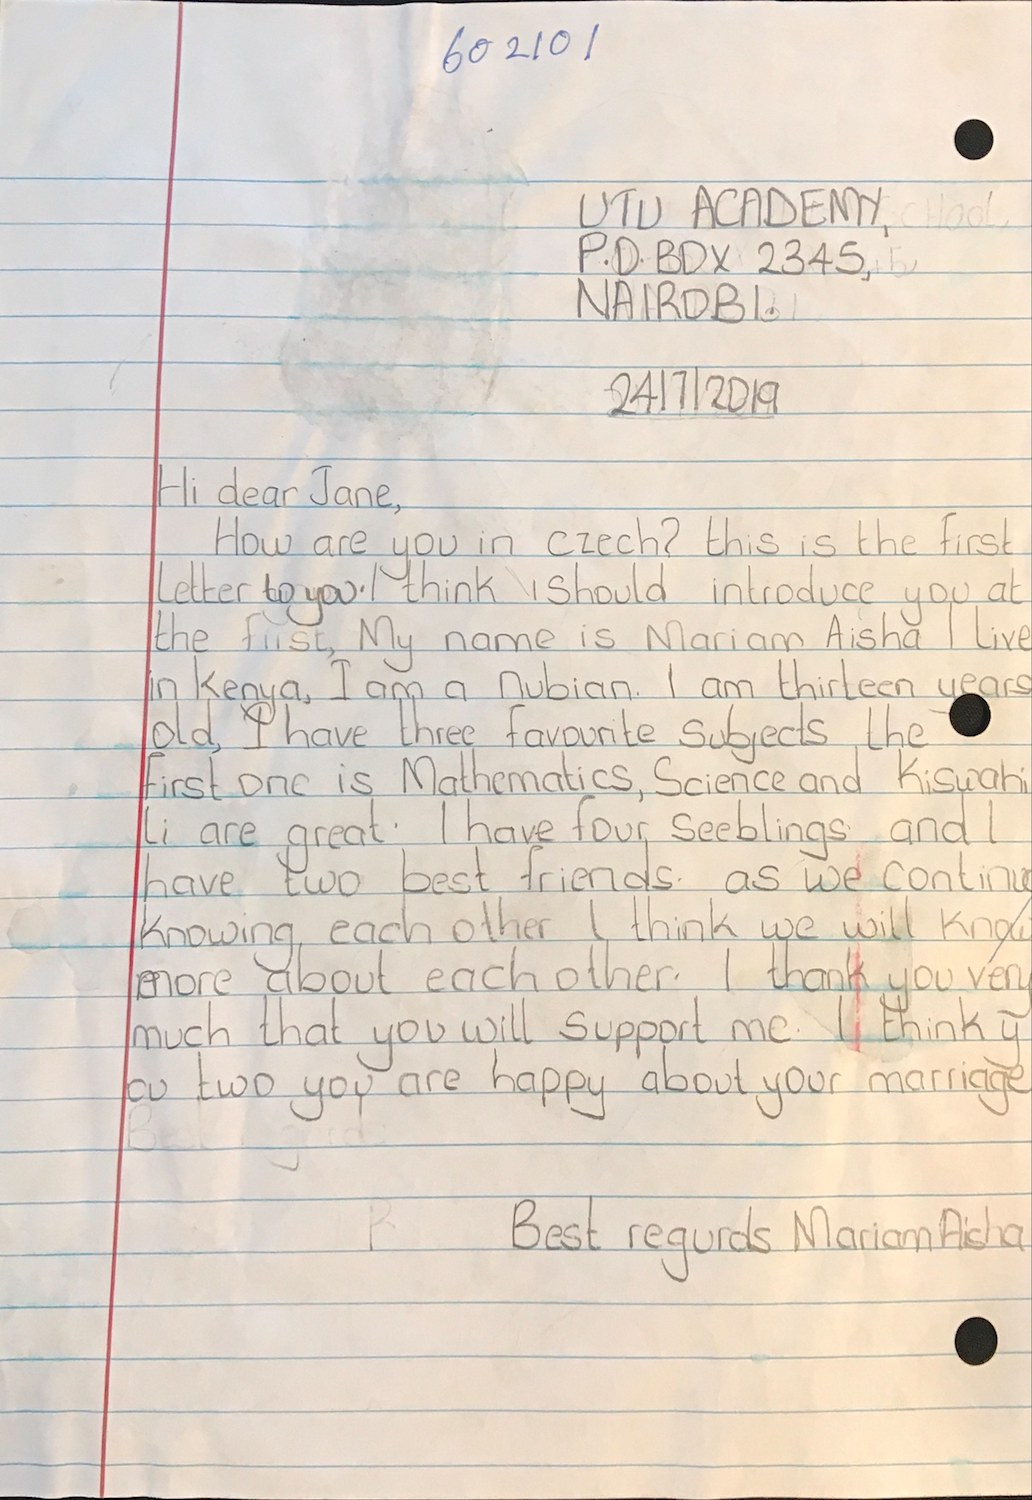 602101
UTU ACADEMY,
P.O. BOX 2345,
NAIROBI.
24/7/2019
Hi dear Jane,
How are you in czech? this is the first
Letter to you. I think I should introduce you at
the fiist, My name is Mariam Aisha I live
in Kenya, I am a nubian. I am thirteen years
old, I have three favourite subjects the
first one is Mathematics, Science and Kiswahi
li are great. I have four seeblings and I
have two best friends. as we continue
knowing each other I think we will know
more about each other. I thank you very
much that you will support me. I think y
ou two you are happy about your marriage
Best regurds Mariam Aisha